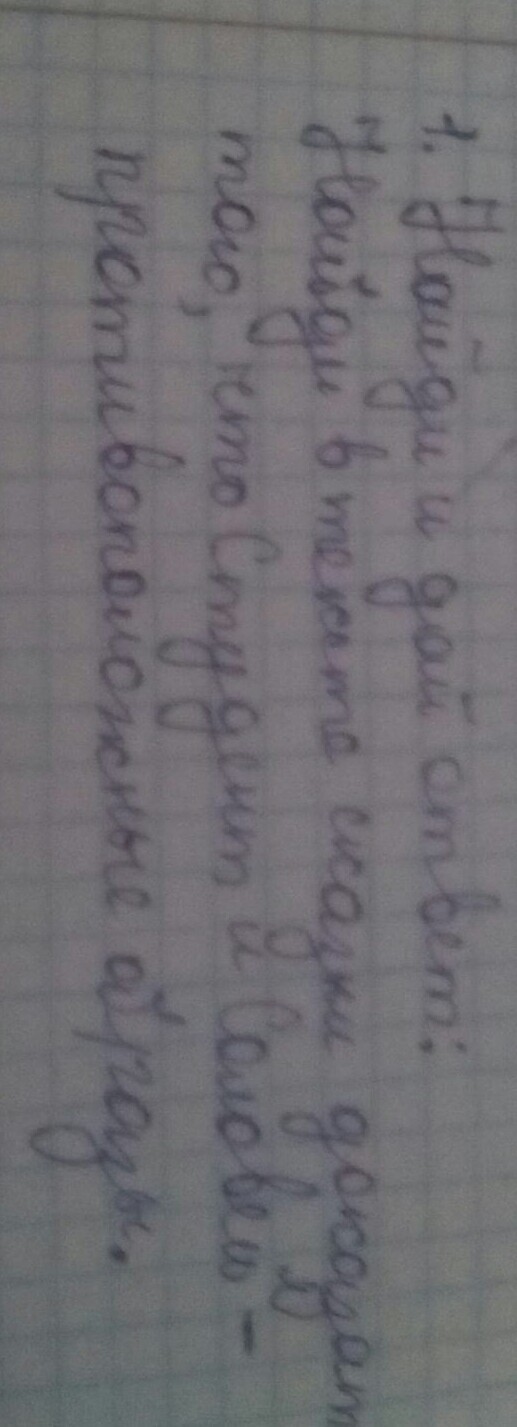 1. Найди и дай ответ:
Найди в тексте сказки доказат
того, что Студент и Соловей -
противоположные образы.